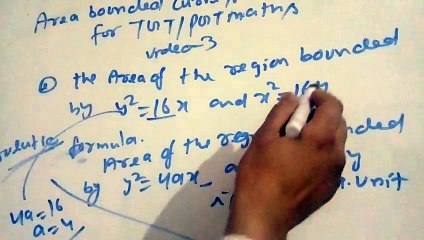 Area bounded
for TGT/PGT maths
video-3
the Area of the region bounded
by y²=16x and x²=16y
formula.
Area of the
by y²=4ax
unit
4a=16
a=4